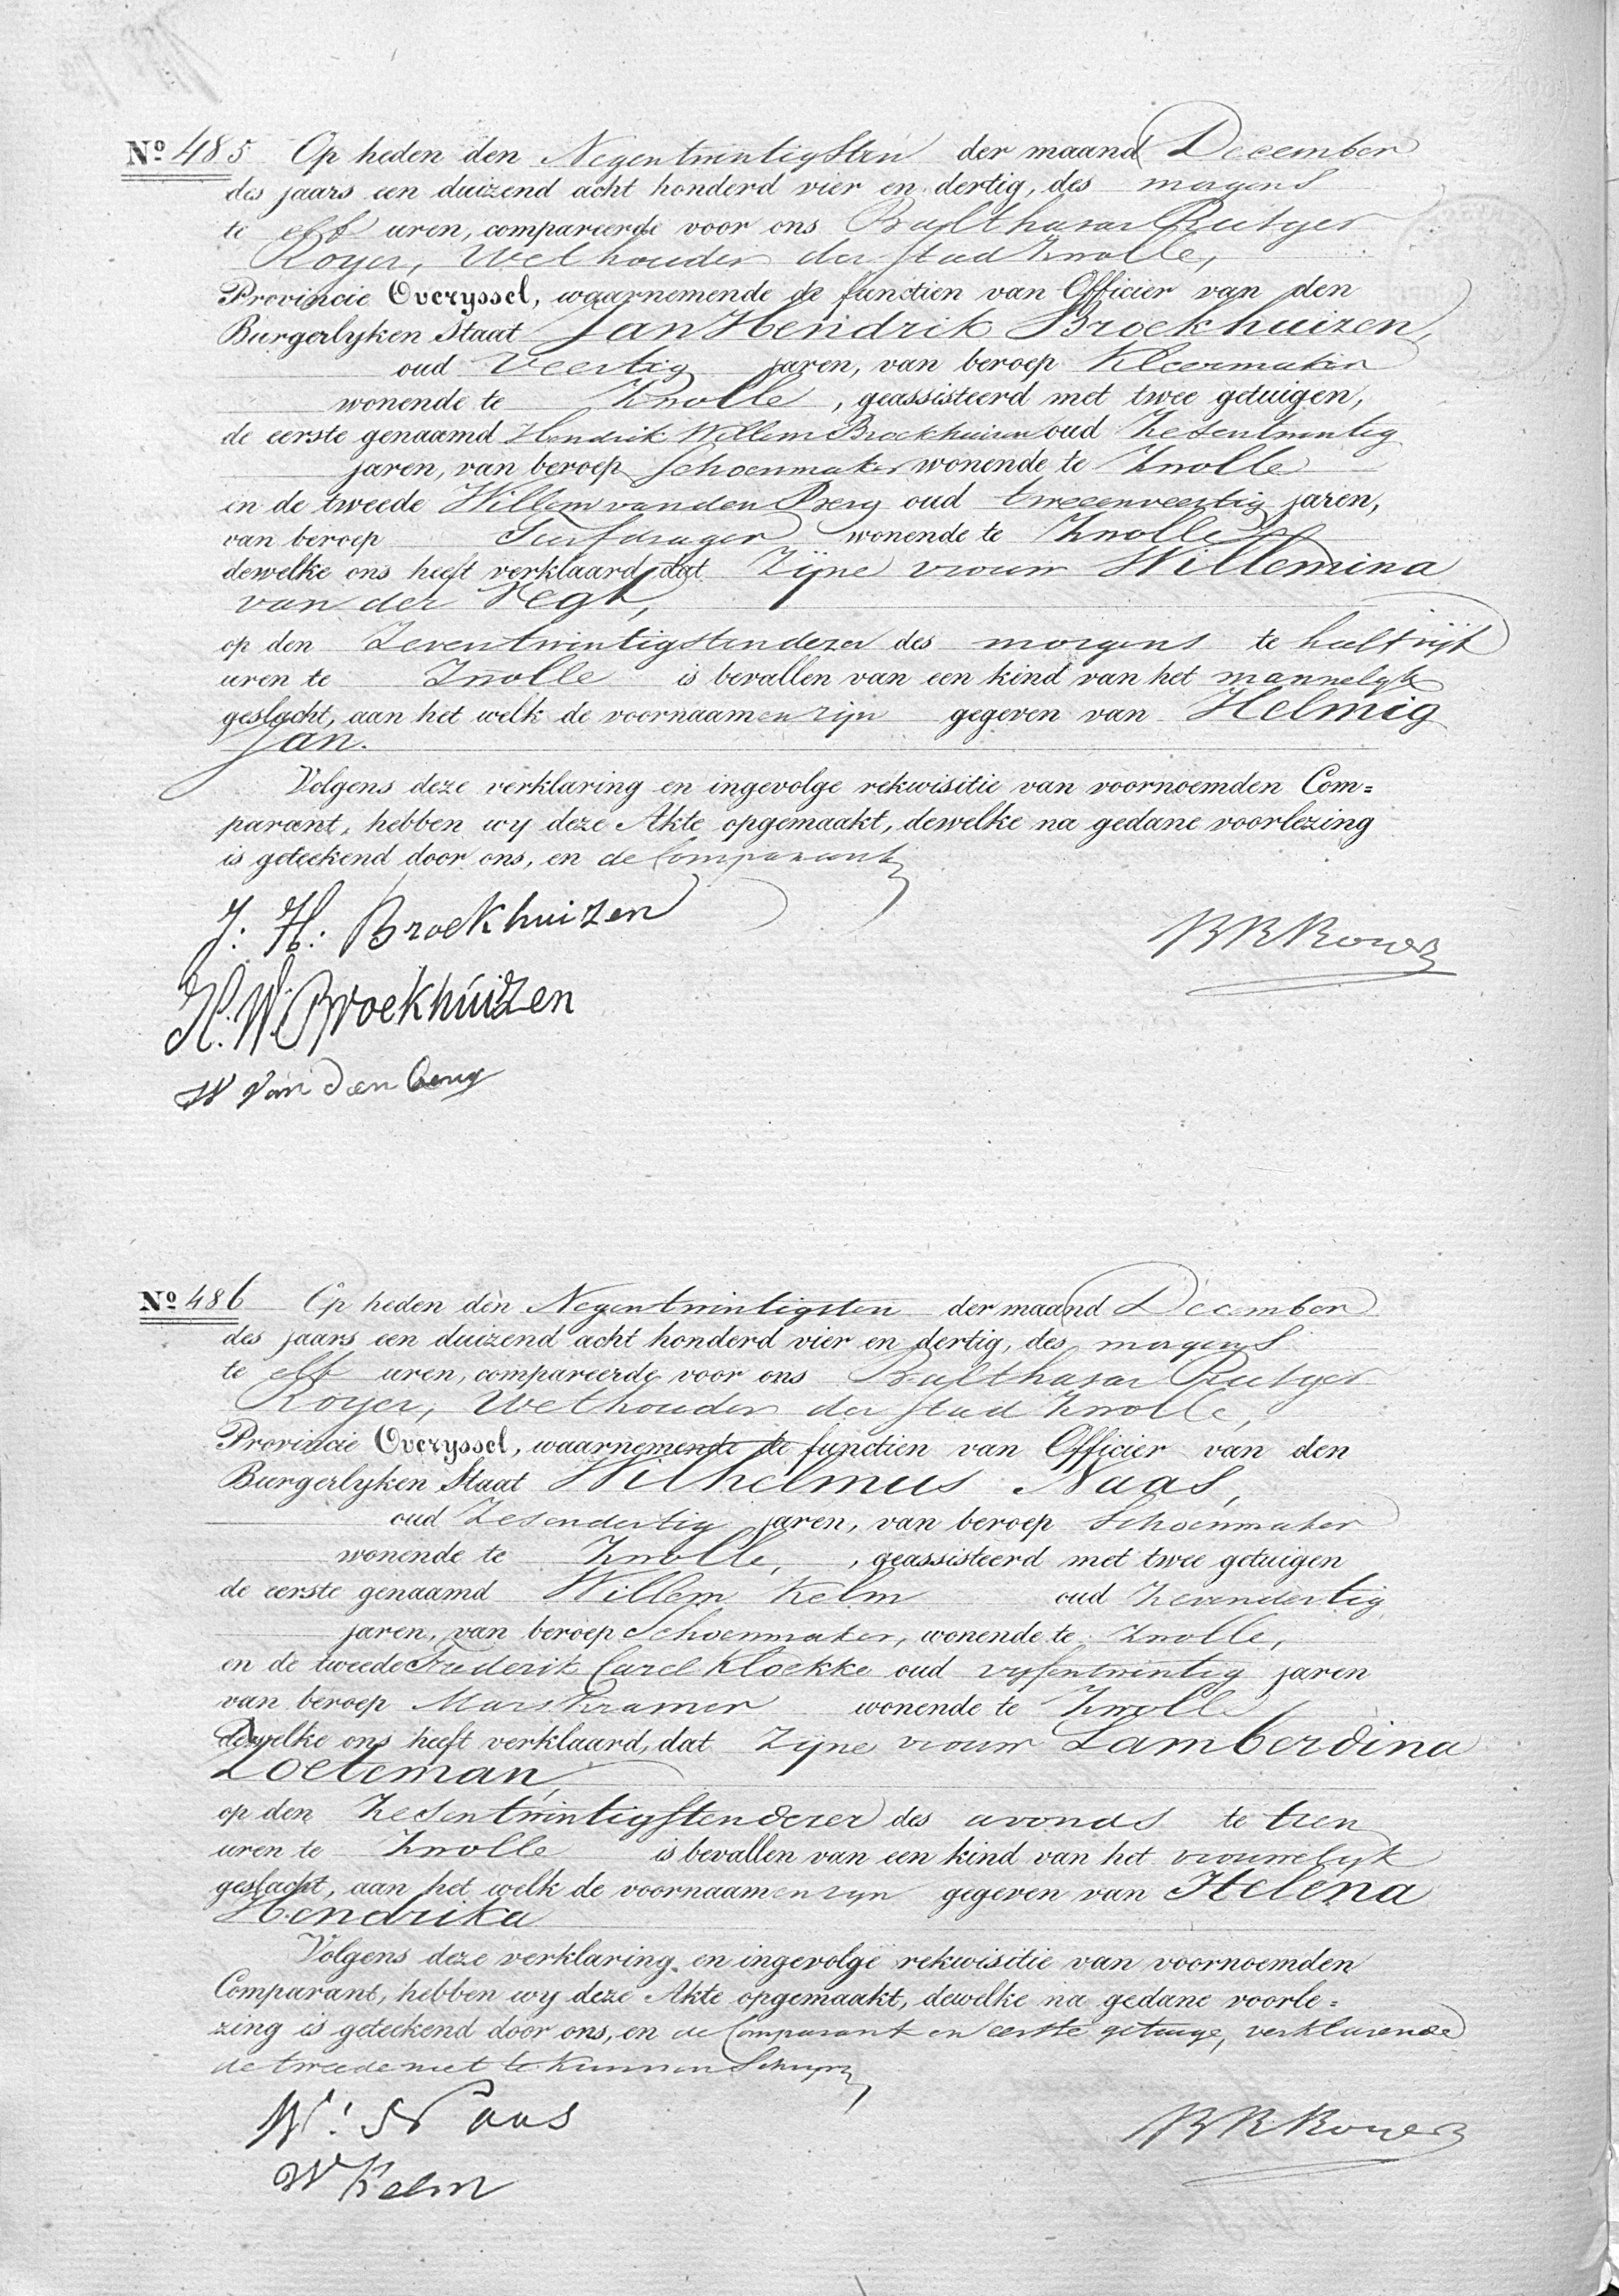 Nº 485 Op heden den Negentwintigsten der maand December
des jaars een duizend acht honderd vier en dertig, des morgens
te elf uren, compareerde voor ons Balthasar Rutger
Royer, Wethouder der stad Zwolle,
Provincie Overyssel, waarnemende de functien van Officier van den
Burgerlyken Staat Jan Hendrik Broekhuizen,
oud Veertig jaren, van beroep Kleermaker
wonende te Zwolle, geassisteerd met twee getuigen,
de eerste genaamd Hendrik Willem Broekhuizen oud Zesentwintig
jaren, van beroep Schoenmaker wonende te Zwolle
en de tweede Willem van den Berg oud tweeenveertig jaren,
van beroep Turfdrager wonende te Zwolle
dewelke ons heeft verklaard, dat Zijne vrouw Willemina
van der Vegt,
op den Zeventwintigsten dezer des morgens te half vijf
uren te Zwolle is bevallen van een kind van het mannelyk
geslacht, aan het welk de voornaamen zijn gegeven van Helmig
Jan.
Volgens deze verklaring en ingevolge rekwisitie van voornoemden Com=
parant, hebben wy deze Akte opgemaakt, dewelke na gedane voorlezing
is geteekend door ons, en de Comparant
J: H: Broekhuizen
BRRoyer
H. W. Broekhuizen
W van den berg
Nº 486 Op heden den Negentwintigsten der maand December
des jaars een duizend acht honderd vier en dertig, des morgens
te elf uren, compareerde voor ons Balthasar Rutger
Royer, Wethouder der stad Zwolle,
Provincie Overyssel, waarnemende de functien van Officier van den
Burgerlyken Staat Wilhelmus Naas,
oud Zesendertig jaren, van beroep Schoenmaker
wonende te Zwolle, , geassisteerd met twee getuigen
de eerste genaamd Willem Kelm oud Zevendertig
jaren, van beroep Schoenmaker, wonende te Zwolle,
en de tweede Frederik Carel Kloekke oud vyfentwintig jaren
van beroep Marskramer wonende te Zwolle
dewelke ons heeft verklaard, dat Zijne vrouw Lamberdina
Zoeteman,
op den Zesentwintigsten dezer des avonds te tien
uren te Zwolle is bevallen van een kind van het vrouwelyk
geslacht, aan het welk de voornaamen zyn gegeven van Helena
Hendrika
Volgens deze verklaring en ingevolge rekwisitie van voornoemden
Comparant, hebben wy deze Akte opgemaakt, dewelke na gedane voorle=
zing is geteekend door ons, en de Comparant en eerste getuige, verklarende
de tweede niet te kunnen Schryven
W: Naas
BRRoyer
W Kelm